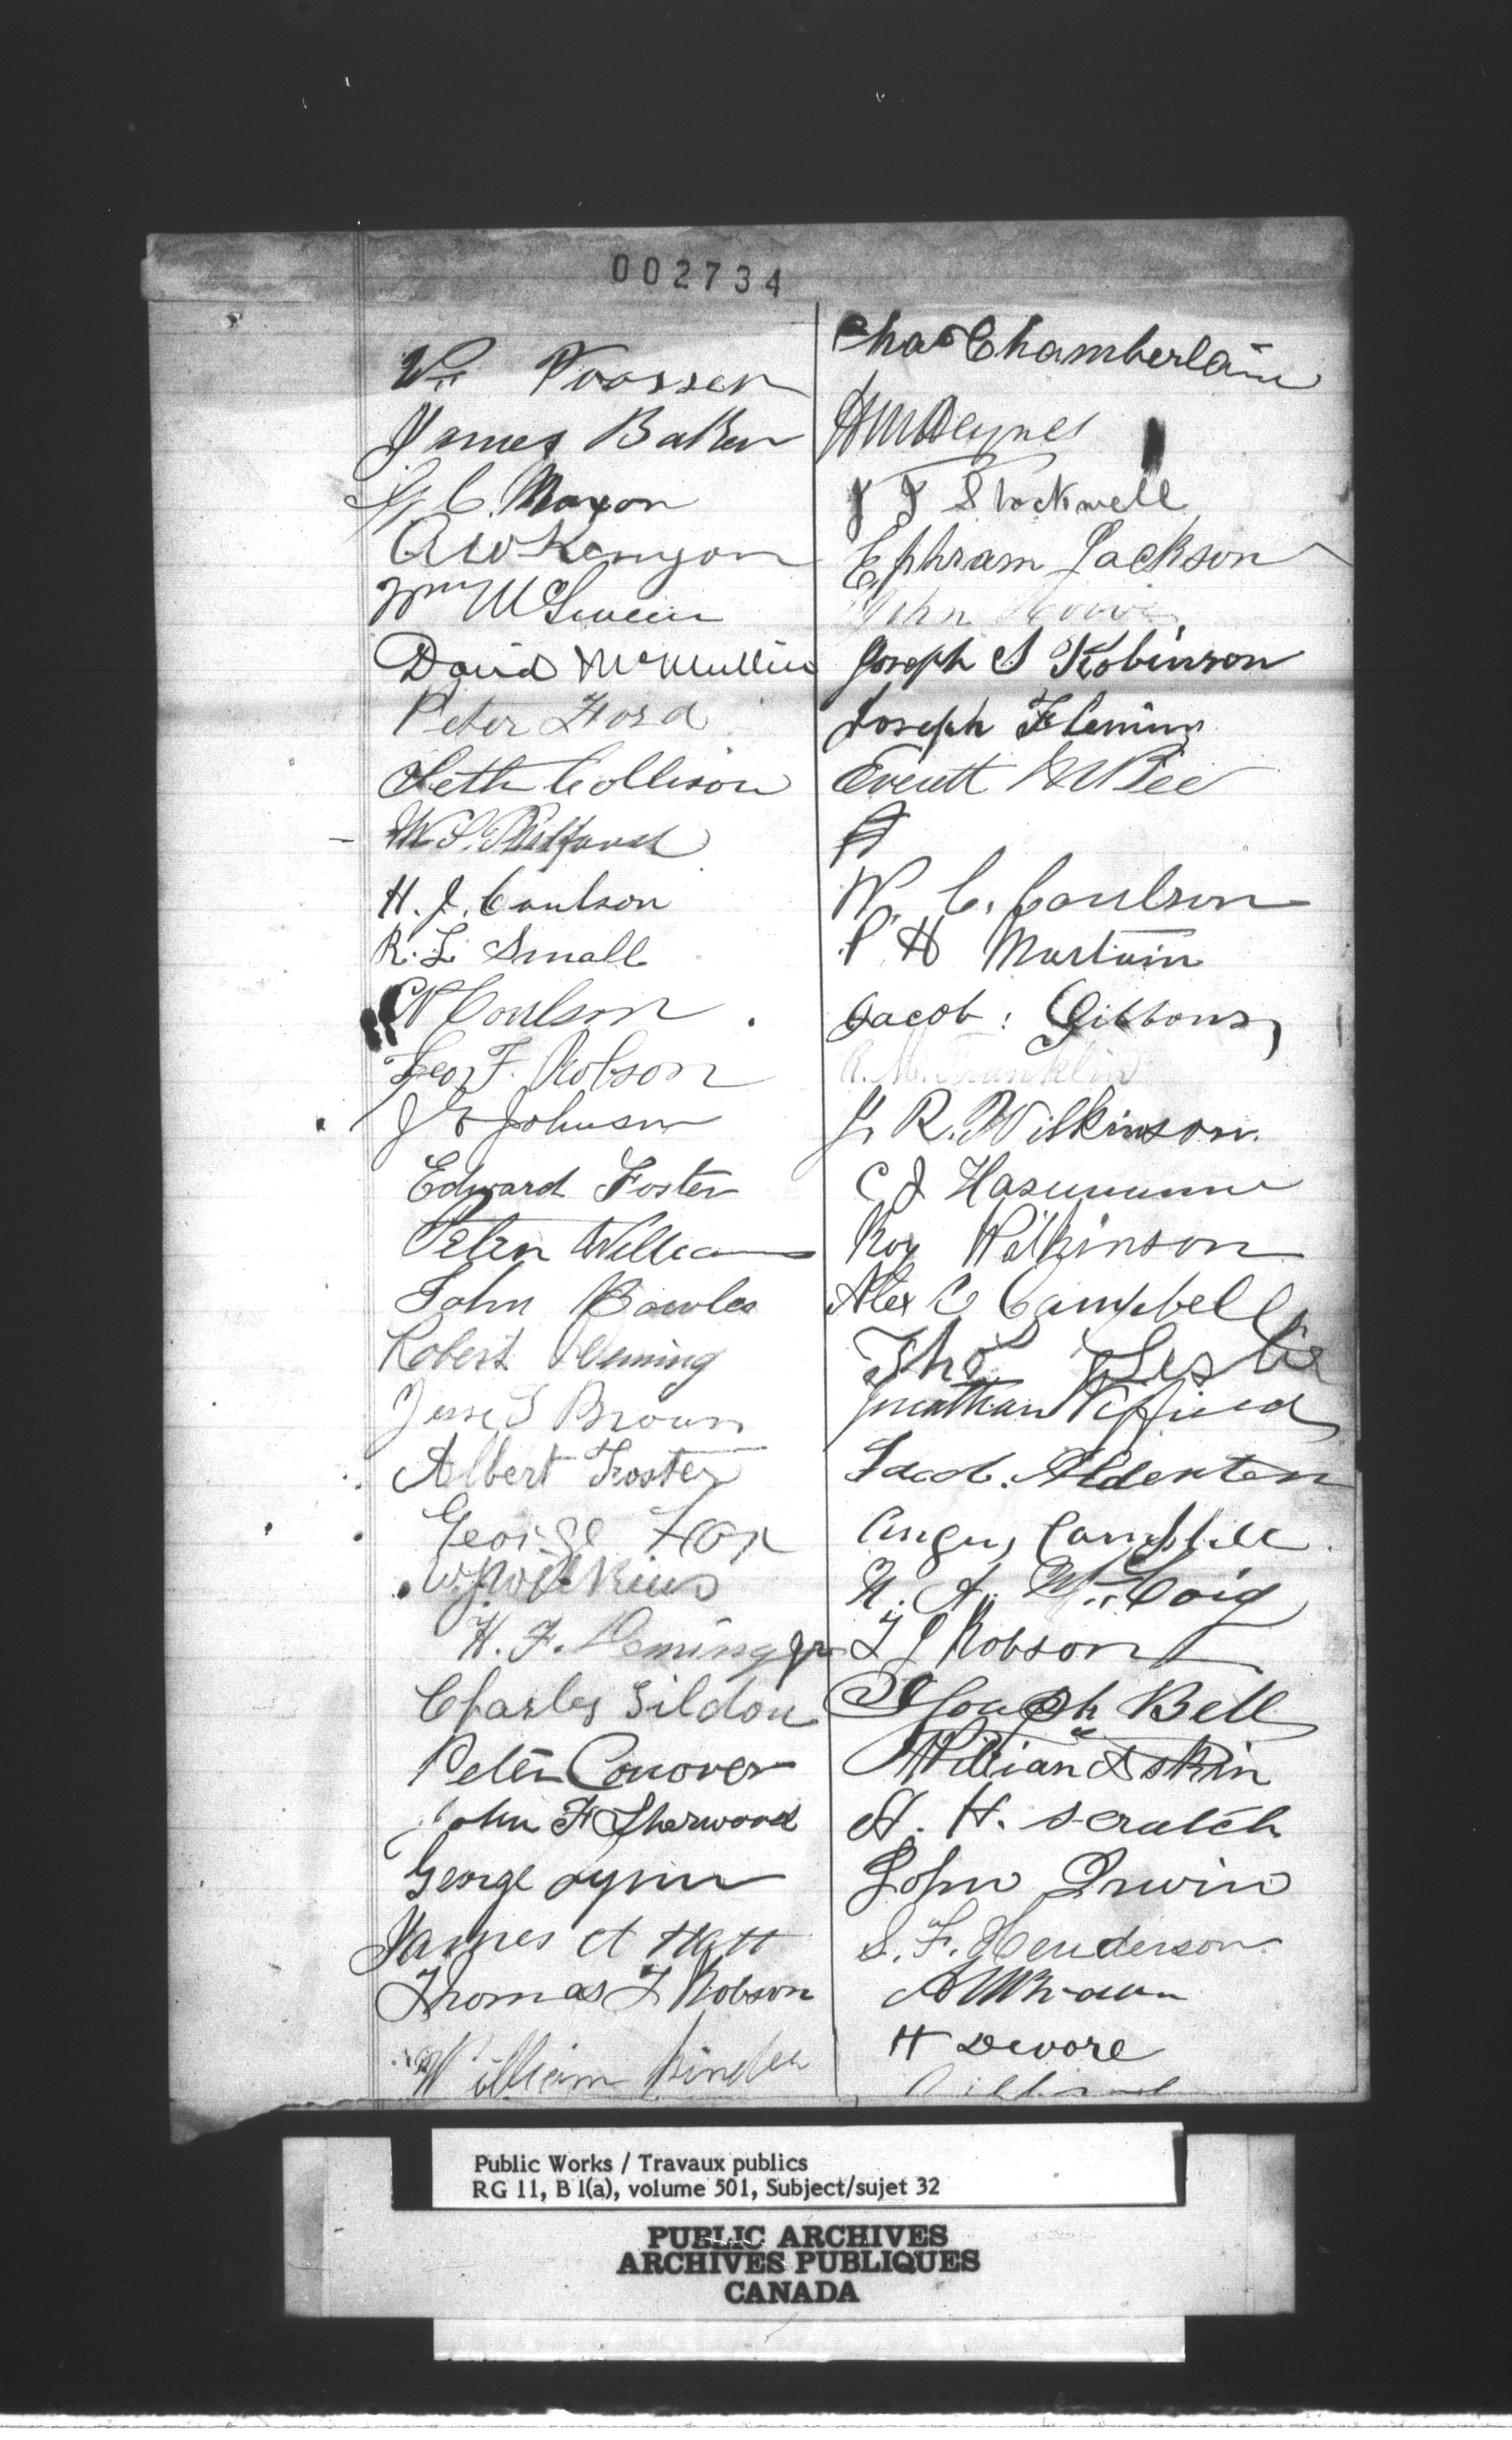 002734
Wm
James Baker
C. Maxon
A W Kenyon
Wm McSween
David McMullin
Peter Ford
Seth Collison
W. S.
H. J. Coulson
R. L. Small
Coulson
Geo F. Robson
J E Johnson
Edward Foster
Peter Williams
John Bowles
Robert Deming
Jesse S Brown
Albert Froster
George Fox
W. J. Wilkins
H. F. Deming Jr
Charles Sildon
Peter Conover
John F Sherwood
George Lynn
James A Hatt
Thomas F Robson
William
Chas Chamberlain
J T Stockwell
Ephram Jackson
John
Joseph S Robinson
Joseph Fleming
Everett McBee
W. C. Coulson
P. H Martain
Jacob: Gibbons
A. M. Franklin
J. R. Wilkinson.
C J
Roy Wilkinson
Alex C Campbell
Thos Leslie
Jonathan
Jacob. Alderton
Angus Campbell
N. A. McCoig
T J Robson
Joseph Bell
William Askin
A. H. Scratch
John Irwin
S. F. Henderson
H Devore
Public Works / Travaux publics
RG 11, B 1(a), volume 501, Subject/sujet 32
PUBLIC ARCHIVES
ARCHIVES PUBLIQUES
CANADA